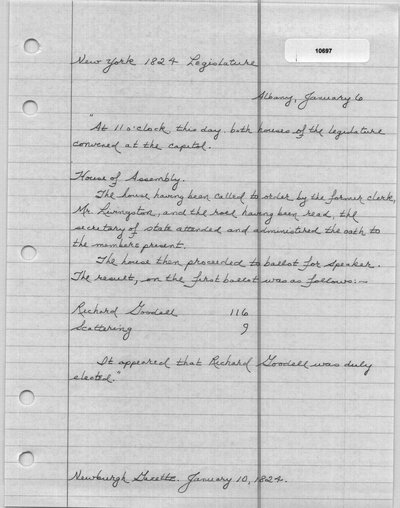 10697
New York 1824 Legislature
Albany, January 6
"At 11 o'clock this day, both houses of the legislature
convened at the capitol.
House of Assembly.
The house having been called to order by the former clerk,
Mr. Livingston, and the roll having been read, the
secretary of state attended and administered the oath to
the members present.
The house then proceeded to ballot for speaker.
The result, on the first ballot was as follows:—
Richard Goodell 116
Scattering 9
It appeared that Richard Goodell was duly
elected."
Newburgh Gazette. January 10, 1824.